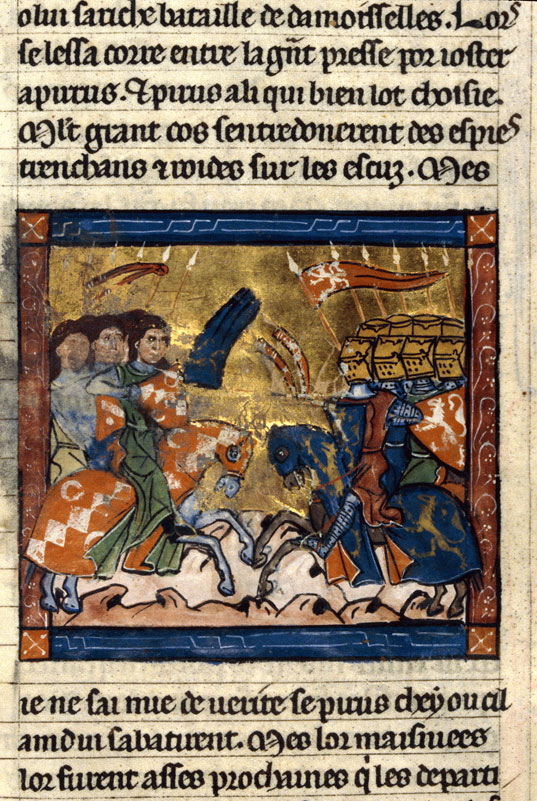 o lui sa riche bataille de damoisselles. Lors
se lessa corre entre la gñt presse por ioster
a pirus. ⁊ pirus a li qui bien lot choisie.
Mlt grant cos sentredonerent des espies
trenchans ⁊ roides sur les escuz. Mes
ie ne sai mie de uerite se pirus cheỹ ou cil
amdui sabatirent. Mes lor maisniees
lor furent asses prochaines q̇ les departi